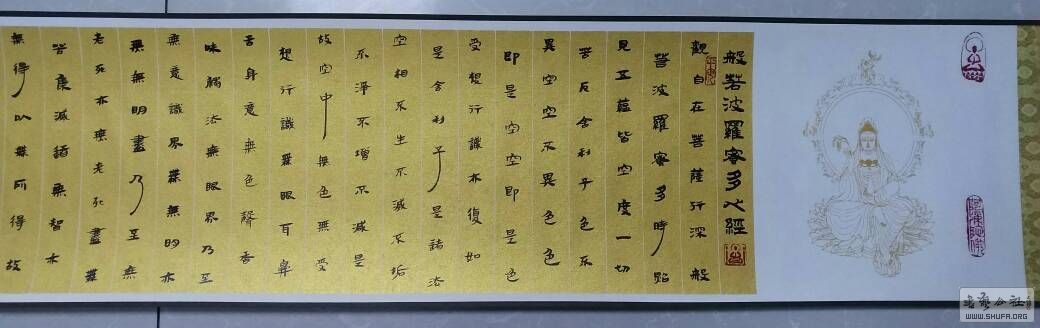 般若波羅蜜多心經
觀自在菩薩行深般
若波羅蜜多時照
見五蘊皆空度一切
苦厄舍利子色不
異空空不異色色
即是空空即是色
受想行識亦復如
是舍利子是諸法
空相不生不滅不垢
不淨不增不減是
故空中無色無受
想行識無眼耳鼻
舌身意無色聲香
味觸法無眼界乃至
無意識界無無明亦
無無明盡乃至無
老死亦無老死盡無
苦集滅道無智亦
無得以無所得故
书艺公社
WWW.SHUFA.ORG